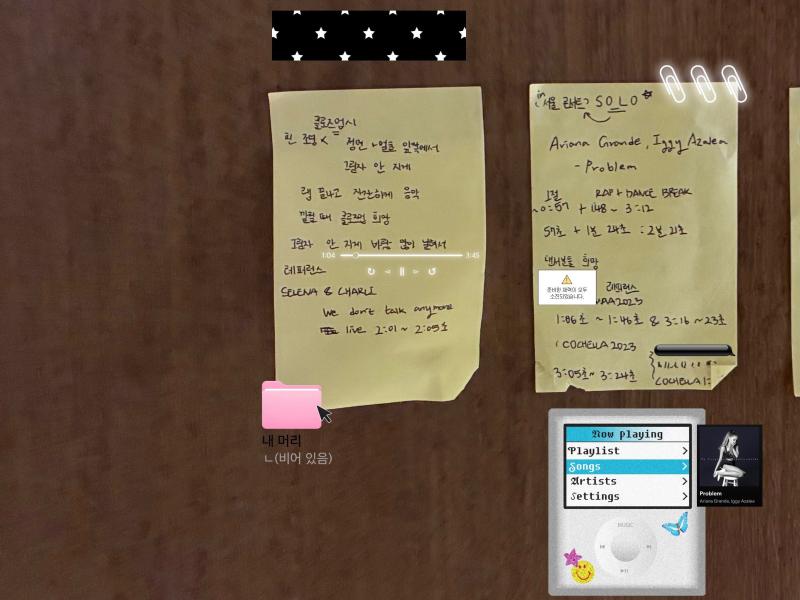 클로즈업시
흰 조명 <
정면 얼굴 앞쪽에서
그림자 안 지게
랩 끝나고 잔잔하게 음악
깔릴 때 클로즈업 희망
그림자 안 지게 바람 많이 날려서
1:04
3:45
레퍼런스
SELENA & CHARLI
We don't talk anymore
live 2:01 ~ 2:05초
내 머리
ㄴ(비어 있음)
in
SOLO
Ariana Grande, Iggy Azalea
- Problem
1절
RAP + DANCE BREAK
~0:57 + 1:48 ~ 3:12
57초 + 1분 24초 = 2분 21초
댄서분들 희망
준비한 체력이 모두
소진되었습니다.
레퍼런스
2023
1:06초 ~ 1:46초 & 3:16 ~ 23초
COCHELLA 2023
3:05초 ~ 3:24초
Now Playing
Playlist
Songs
Artists
Settings
MENU
Problem
Ariana Grande, Iggy Azalea